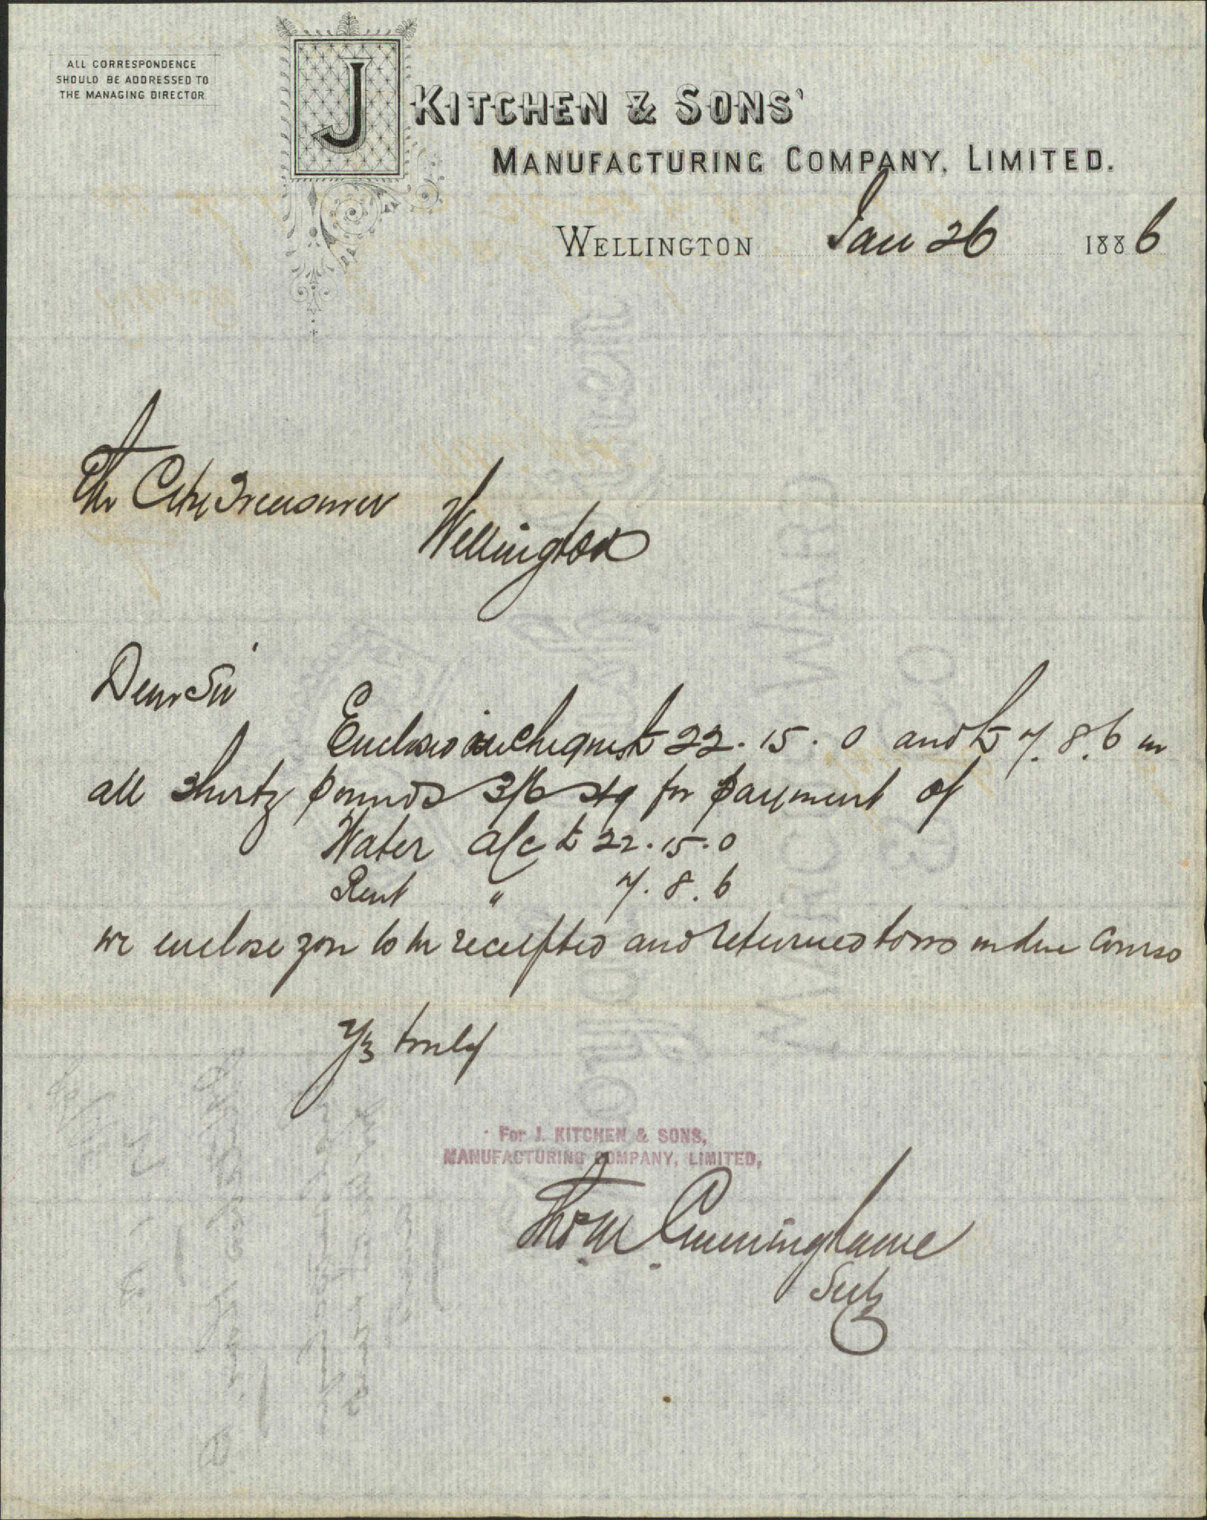 ALL CORRESPONDENCE
SHOULD BE ADDRESSED TO
THE MANAGING DIRECTOR.
J KITCHEN & SONS'
MANUFACTURING COMPANY, LIMITED.
WELLINGTON Jan 26 1886
The City Treasurer
Wellington
Dear Sir
Enclosed cheques £22.15.0 and £7.8.6 in
all thirty pounds 3/6 stg for payment of
Water a/c £22.15.0
Rent " 7.8.6
we enclose you to be receipted and returned to us in due course
Yrs truly
For J. KITCHEN & SONS,
MANUFACTURING COMPANY, LIMITED,
Thos M. Cunninghame
Secty